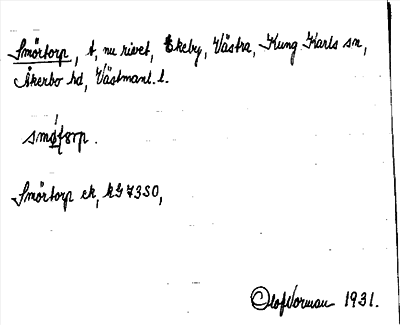 Smörtorp, t, nu rivet, Ekeby, Västra, Kung Karls sn,
Åkerbo hd, Västmanl. l.
Smörtorp ek, 
Olof Norman 1931.